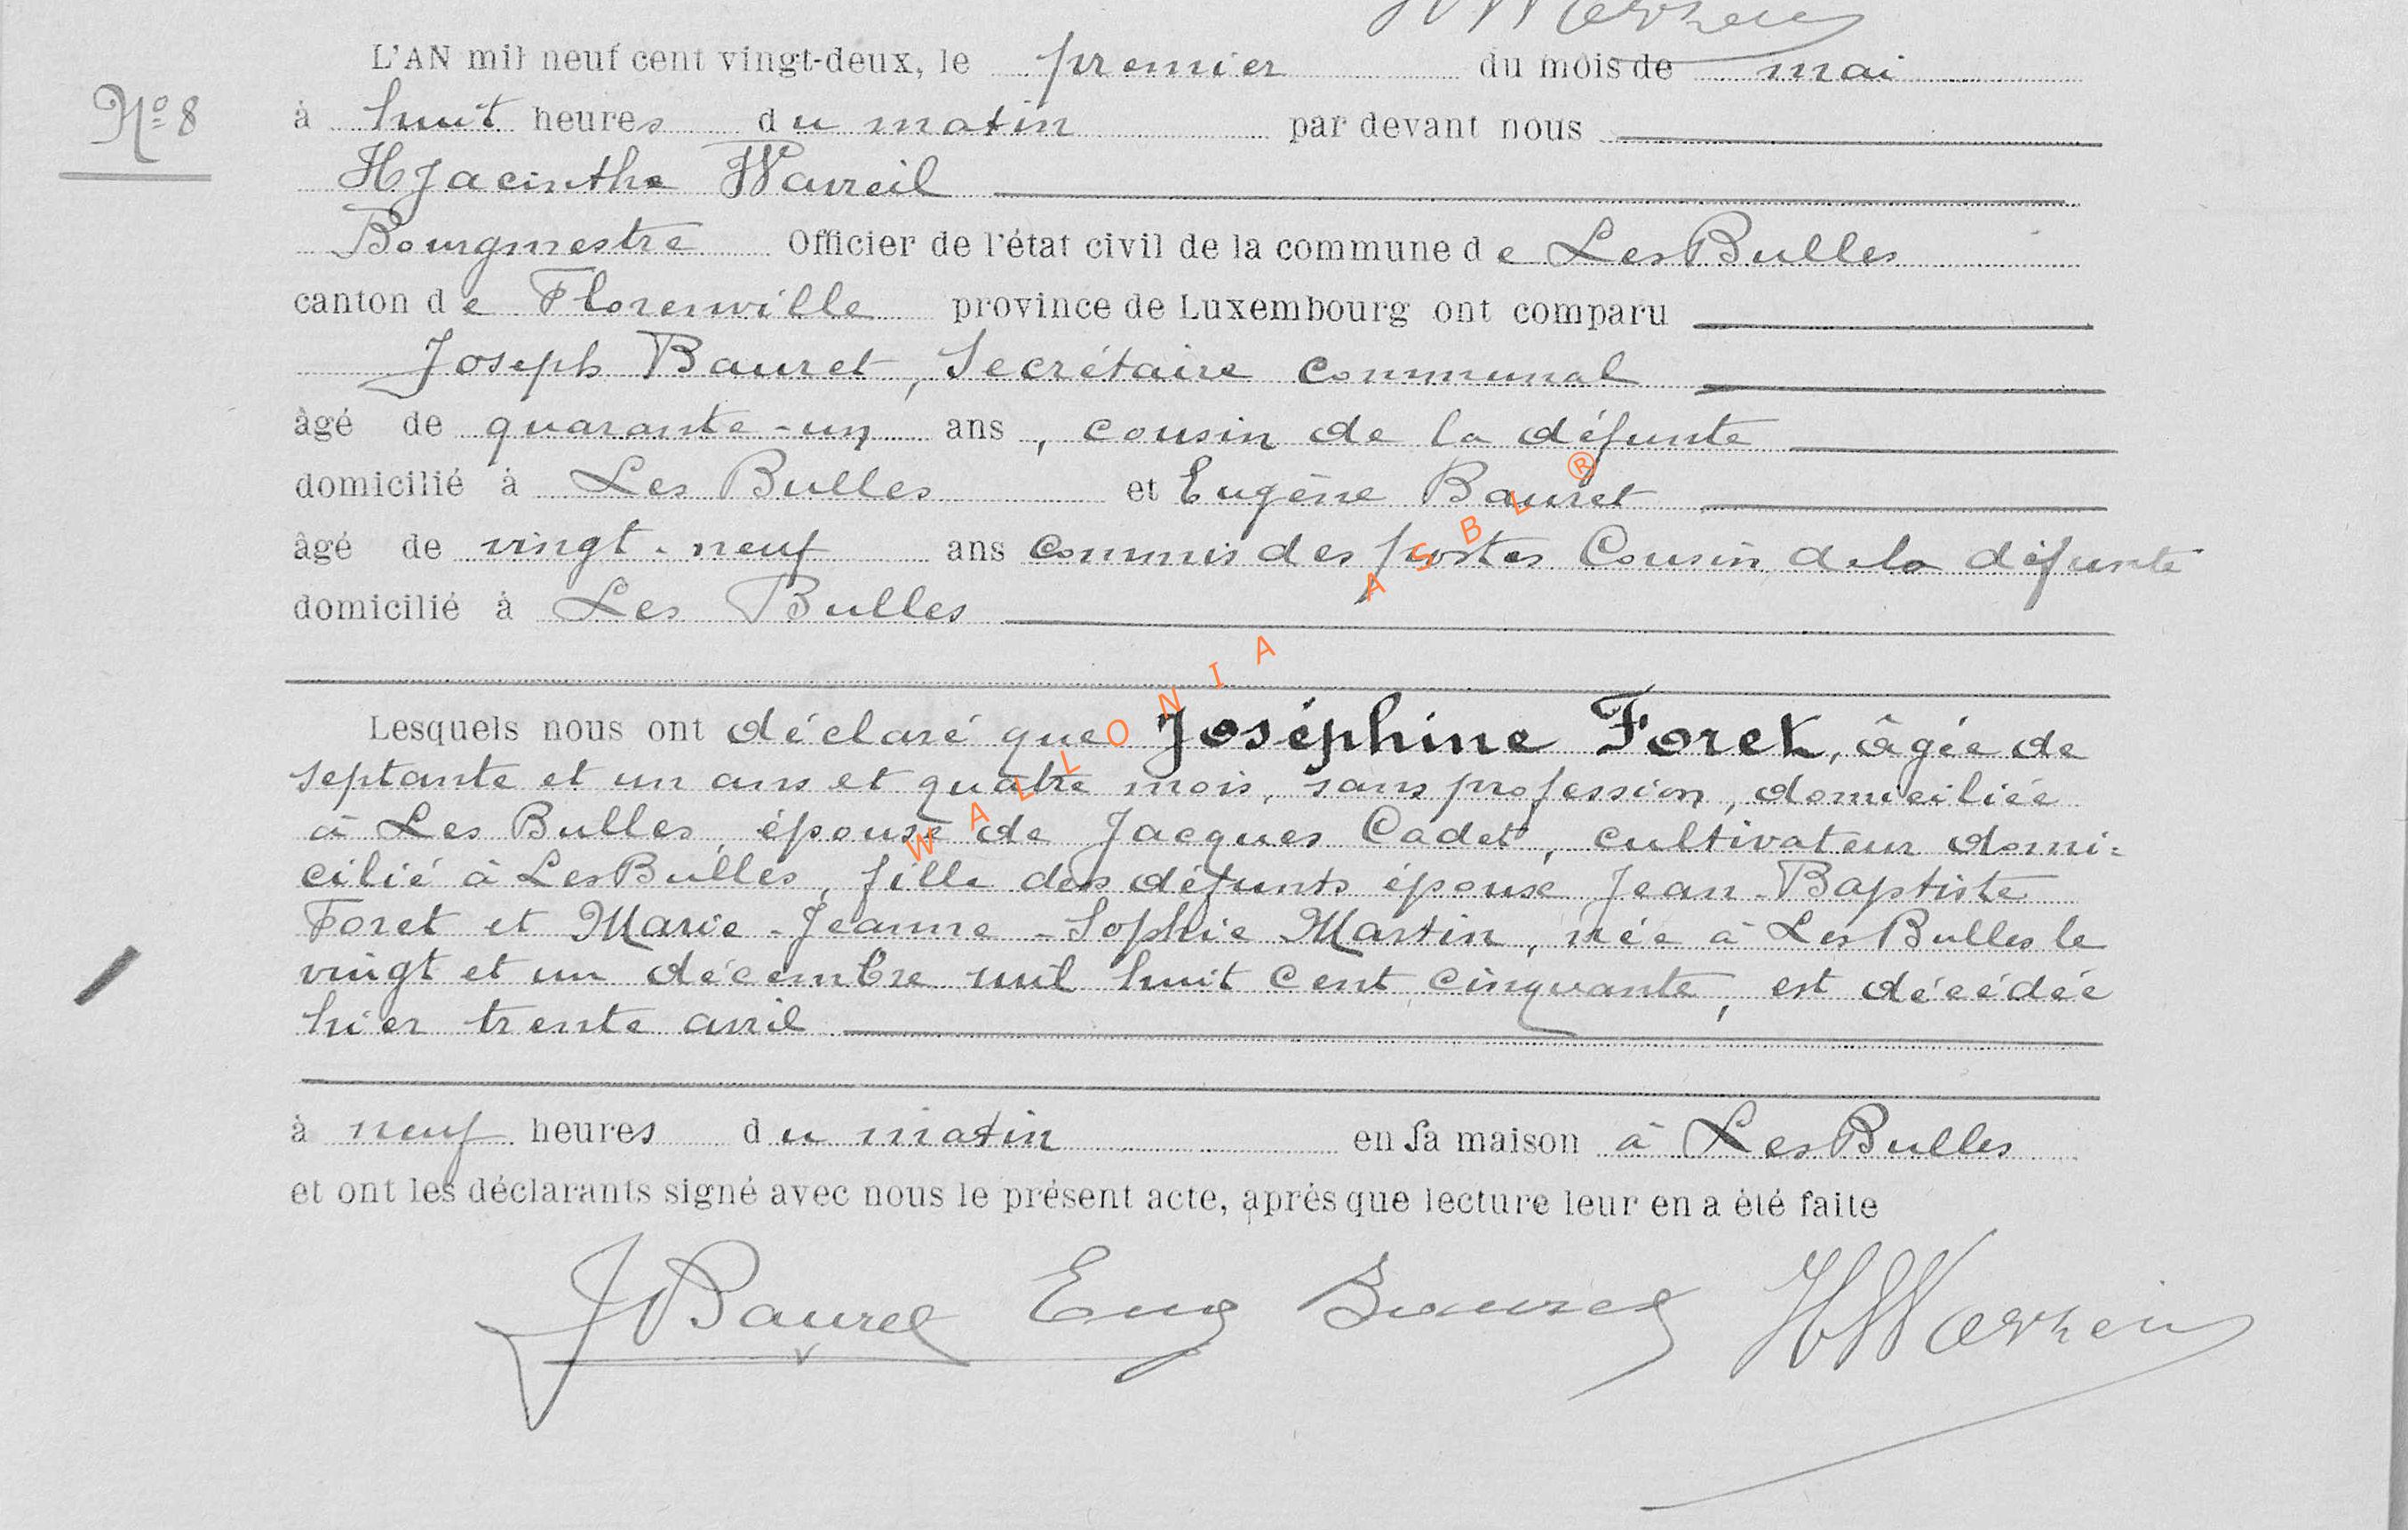 L'AN mil neuf cent vingt-deux, le premier du mois de mai
N° 8
à huit heures du matin par devant nous
Hyacinthe
Bourgmestre Officier de l'état civil de la commune de Les Bulles
canton de Florenville province de Luxembourg ont comparu
Joseph Bauret, Secrétaire Communal
âgé de quarante-un ans, cousin de la défunte
domicilié à Les Bulles et Eugène Bauret
âgé de vingt-neuf ans commis des postes Cousin de la défunte
domicilié à Les Bulles
Lesquels nous ont déclaré que Joséphine Foret, âgée de
septante et un ans et quatre mois, sans profession, domiciliée
à Les Bulles, épouse de Jacques Cadet, cultivateur domi=
cilié à Les Bulles, fille des défunts épouse Jean-Baptiste
Foret et Marie-Jeanne-Sophie Martin, née à Les Bulles le
vingt et un décembre mil huit cent cinquante, est décédée
hier trente avril
à neuf heures du matin en sa maison à Les Bulles
et ont les déclarants signé avec nous le présent acte, après que lecture leur en a été faite
J Bauret Eug Bauret
WALLONIA ASBL ®